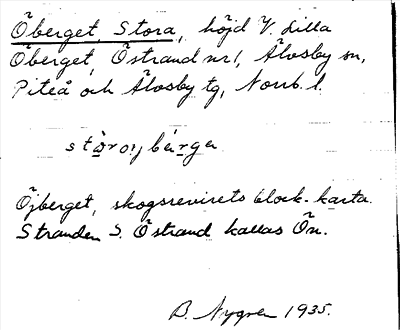 Öberget, Stora, höjd V. Lilla
Öberget, Östrand nr 1, Älvsby sn,
Piteå och Älvsby tg, Norrb. l.
stòr o̤i̯bærga
Öjberget, skogsrevirets block-karta.
Stranden S. Östrand kallas Ön.
B. Nygren 1935.